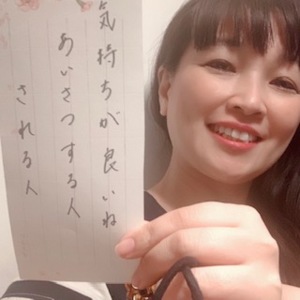 気持ちが良いね
あいさつする人
される人